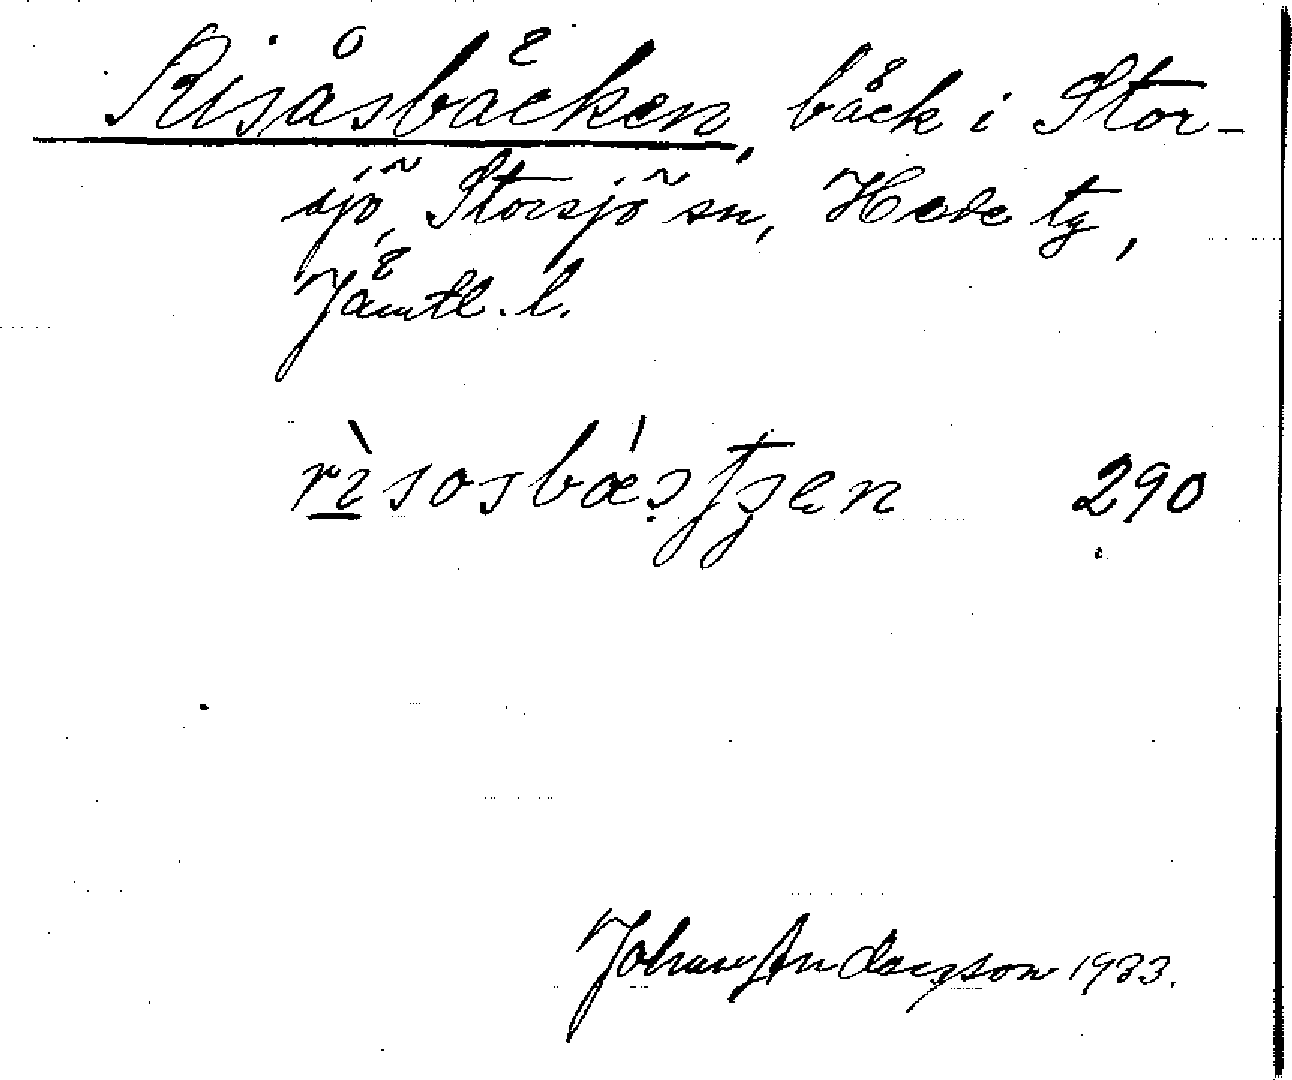 Risåsbäcken, bäck i Stor-
sjö, Storsjö sn, Hede tg,
Jämtl. l.
rìsosbǽʂtʂen 290
Johan Andersson 1933.